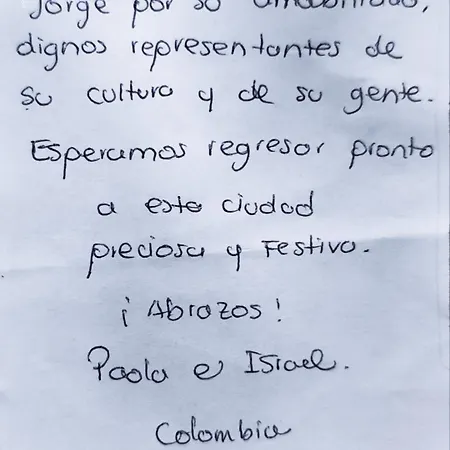 Jorge por su amabilidad,
dignos representantes de
su cultura y de su gente.
Esperamos regresar pronto
a esta ciudad
preciosa y Festiva.
¡Abrazos!
Paola e Israel.
Colombia